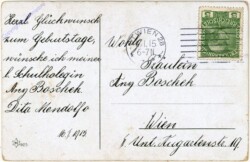 Herzl. Glückwunsch
zum Geburtstage,
wünsche ich meiner
l. Schulkolegin
Ang Boschek
Dita Mendolfo
10./I. 1915
WIEN
I.15
Wohlg.
Fräulein
Ang Boschek
Wien
Unt. Augartenstr.